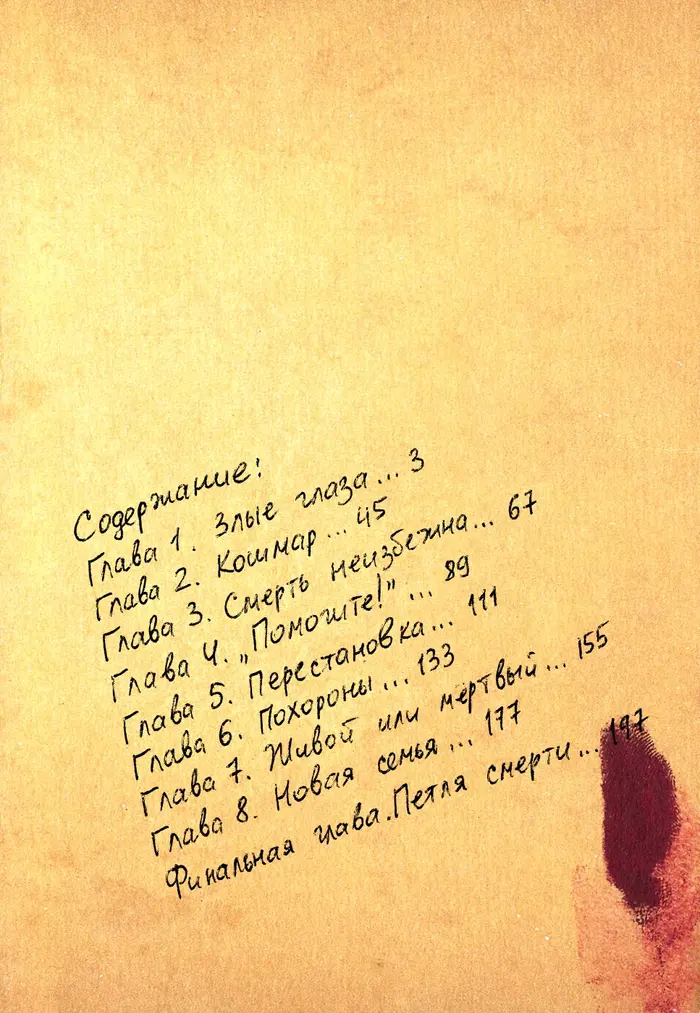 Содержание:
Глава 1. Злые глаза... 3
Глава 2. Кошмар... 45
Глава 3. Смерть неизбежна... 67
Глава 4. „Помогите!"... 89
Глава 5. Перестановка... 111
Глава 6. Похороны... 133
Глава 7. Живой или мертвый... 155
Глава 8. Новая семья... 177
Финальная глава. Петля смерти... 197